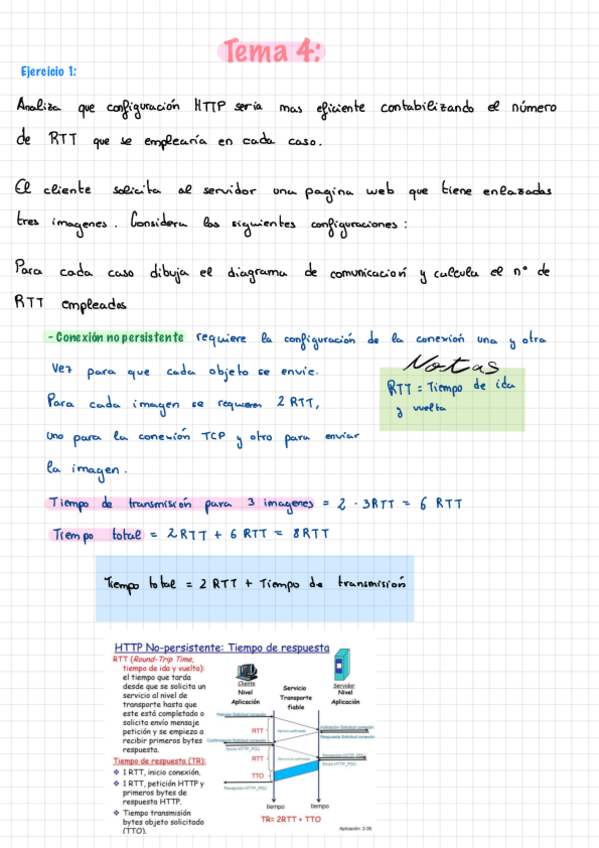 Tema 4:
Ejercicio 1:
Analiza que configuración HTTP sería mas eficiente contabilizando el número
de RTT que se emplearía en cada caso.
El cliente solicita al servidor una pagina web que tiene enlazadas
tres imagenes. Considera las siguientes configuraciones:
Para cada caso dibuja el diagrama de comunicación y calcula el nº de
RTT empleados
- Conexión no persistente requiere la configuración de la conexion una y otra
vez para que cada objeto se envíe.
Notas
RTT = Tiempo de ida
y vuelta
Para cada imagen se requieren 2 RTT,
uno para la conexión TCP y otro para enviar
la imagen.
Tiempo de transmisión para 3 imagenes = 2 · 3RTT = 6 RTT
Tiempo total = 2RTT + 6 RTT = 8RTT
Tiempo total = 2 RTT + Tiempo de transmisión
HTTP No-persistente: Tiempo de respuesta
RTT (Round-Trip Time,
tiempo de ida y vuelta):
el tiempo que tarda
desde que se solicita un
servicio al nivel de
transporte hasta que
este está completado o
solicita envío mensaje
petición y se empieza a
recibir primeros bytes
respuesta.
Tiempo de respuesta (TR):
❖ 1 RTT, inicio conexión.
❖ 1 RTT, petición HTTP y
primeros bytes de
respuesta HTTP.
❖ Tiempo transmisión
bytes objeto solicitado
(TTO).
Cliente
Nivel
Aplicación
Servicio
Transporte
fiable
Servidor
Nivel
Aplicación
RTT
RTT
TTO
tiempo
tiempo
TR= 2RTT + TTO